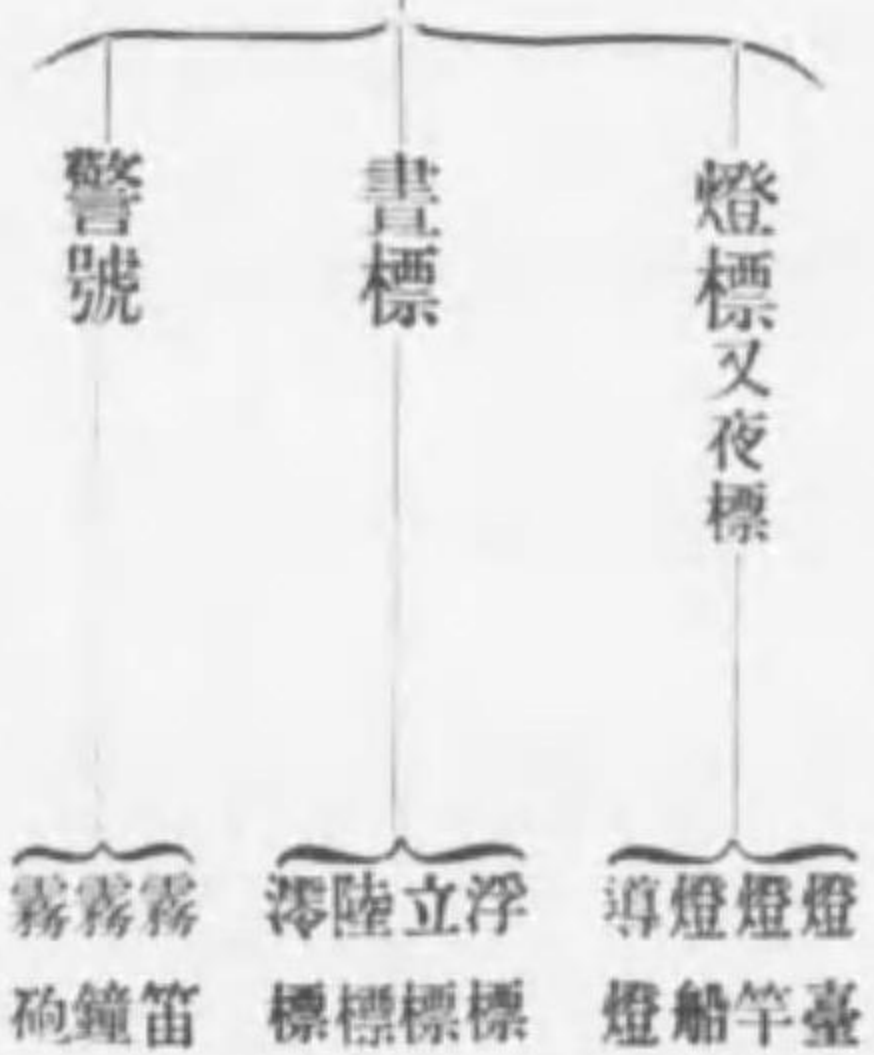 燈標又夜標
燈臺
燈竿
燈船
導燈
晝標
浮標
立標
陸標
澪標
警號
霧笛
霧鐘
霧砲